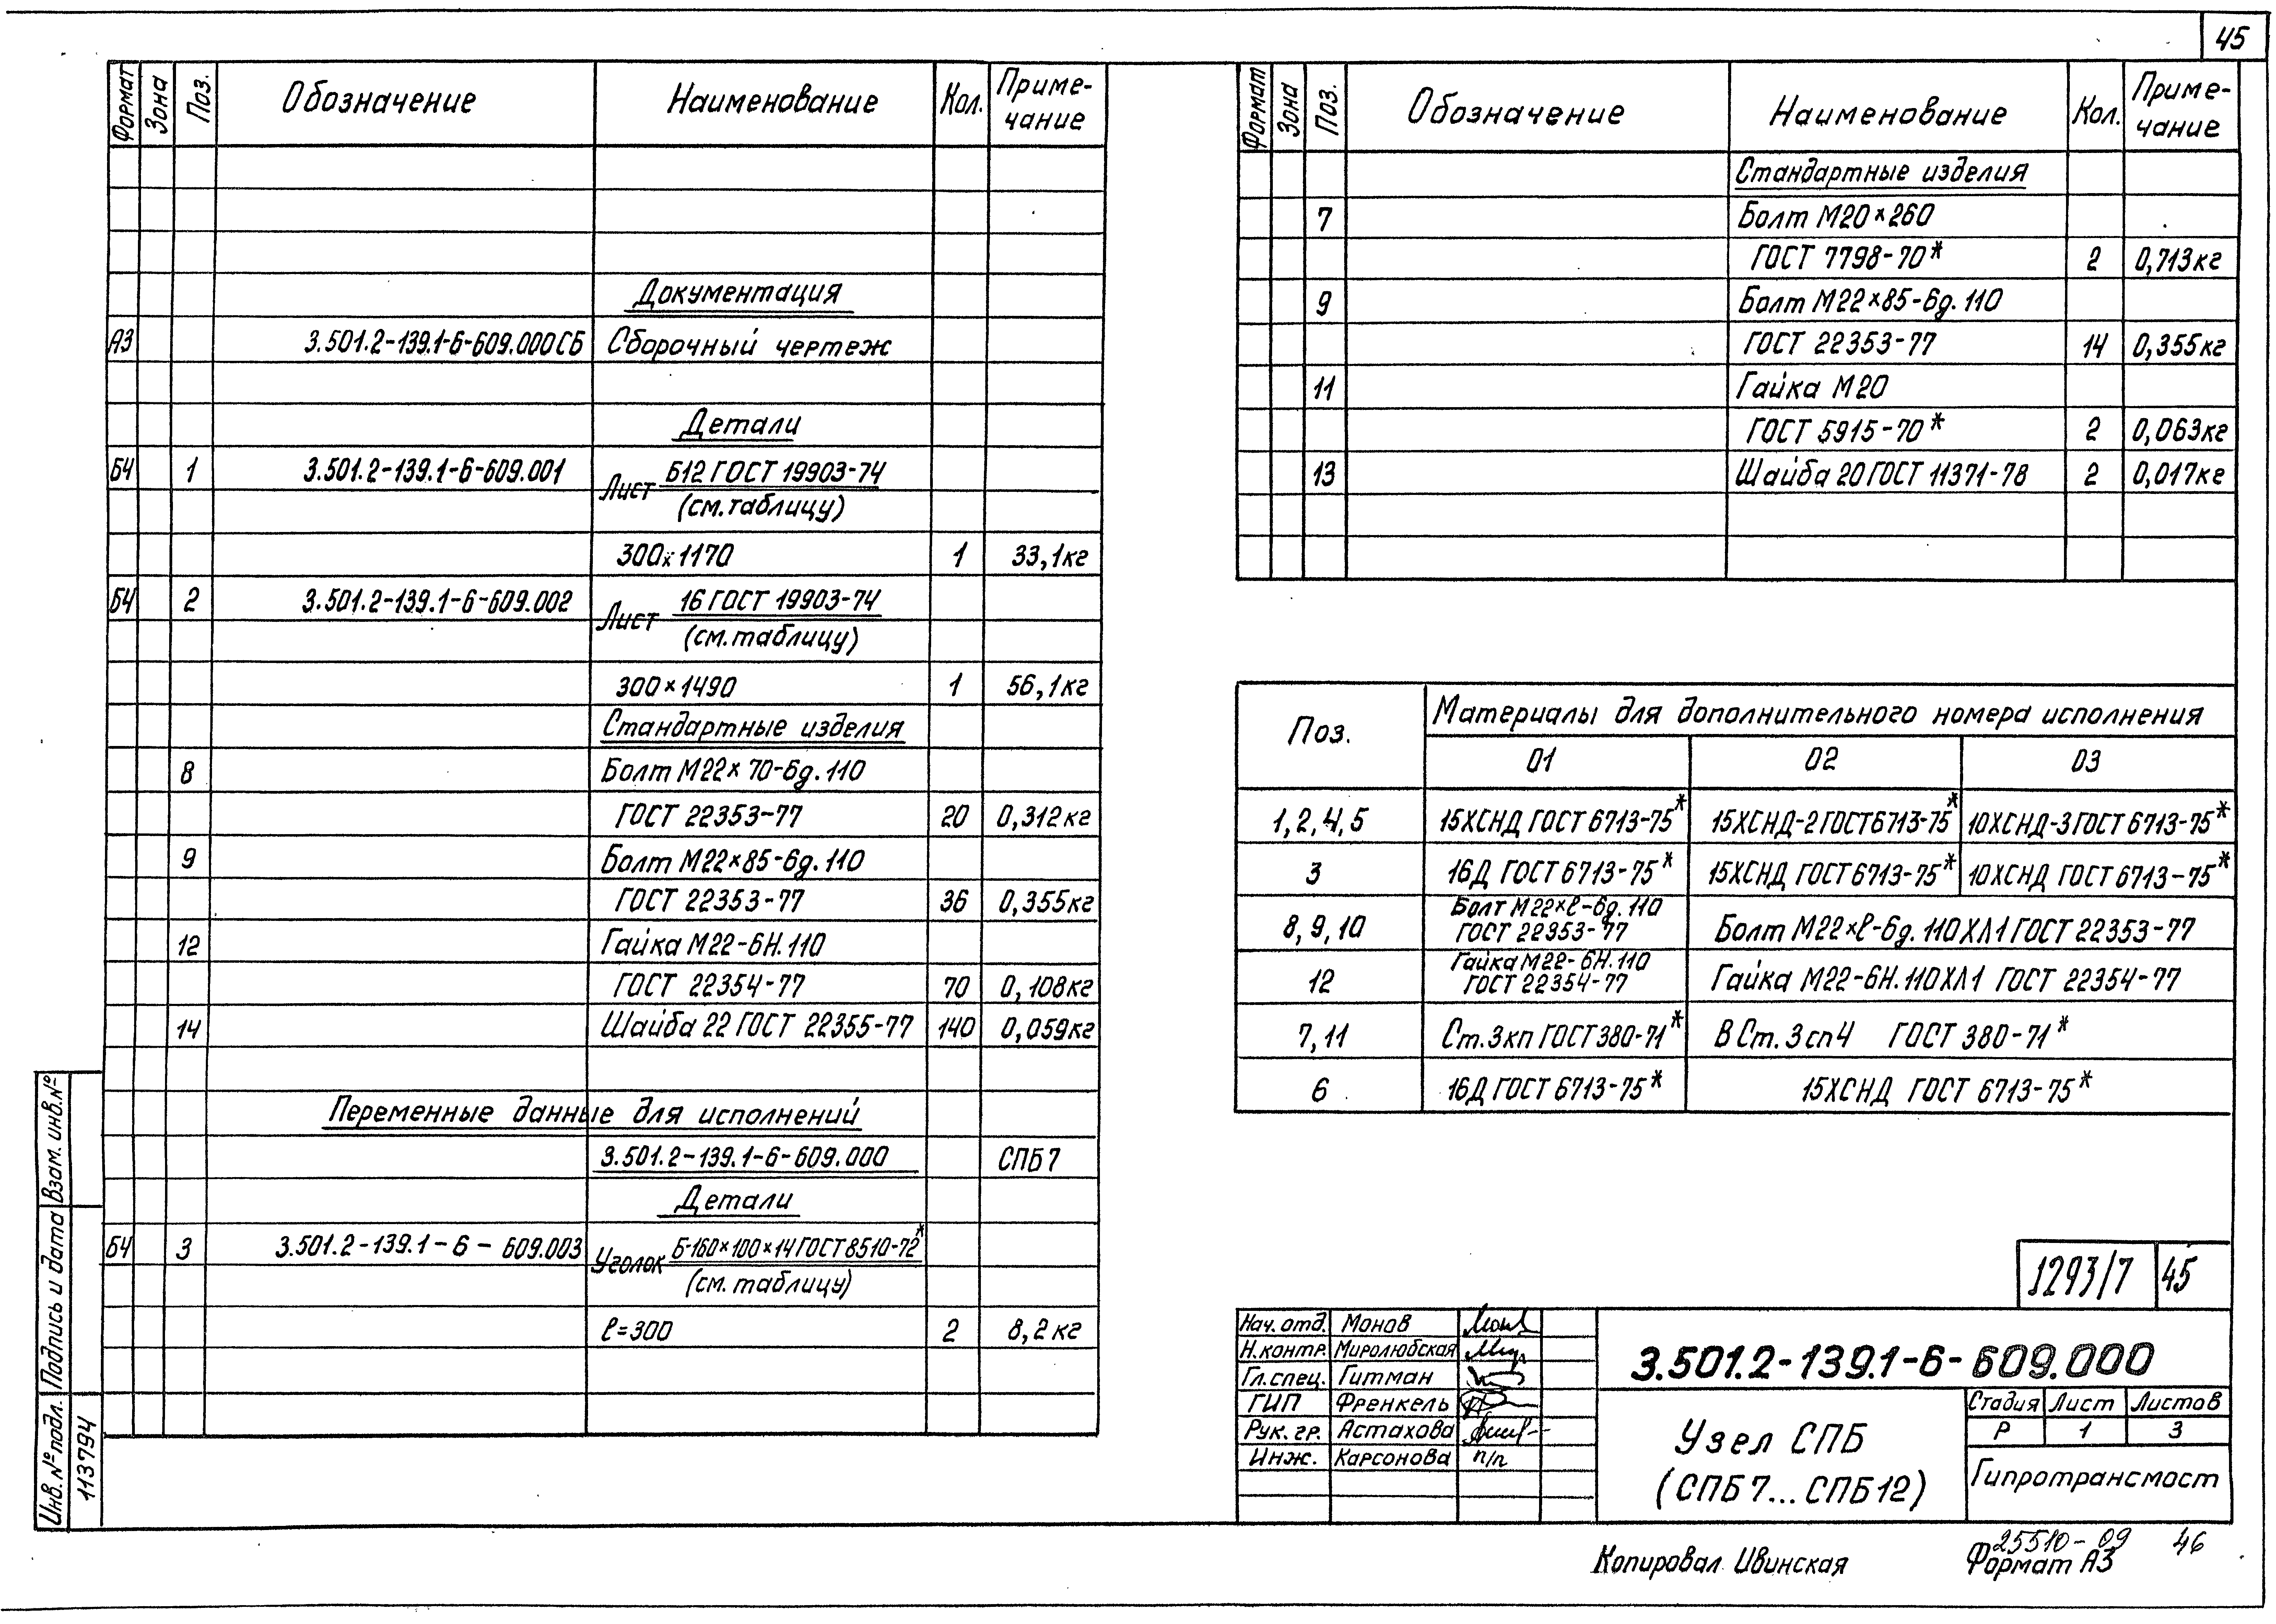 45
Формат Зона Поз. Обозначение Наименование Кол. Приме-
чание
Документация
А3 3.501.2-139.1-6-609.000СБ Сборочный чертеж
Детали
БЧ 1 3.501.2-139.1-6-609.001 Лист Б12 ГОСТ 19903-74
(см. таблицу)
300×1170 1 33,1кг
БЧ 2 3.501.2-139.1-6-609.002 Лист 16 ГОСТ 19903-74
(см. таблицу)
300×1490 1 56,1кг
Стандартные изделия
8 Болт М22×70-6g.110
ГОСТ 22353-77 20 0,312кг
9 Болт М22×85-6g.110
ГОСТ 22353-77 36 0,355кг
12 Гайка М22-6Н.110
ГОСТ 22354-77 70 0,108кг
14 Шайба 22 ГОСТ 22355-77 140 0,059кг
Переменные данные для исполнений
3.501.2-139.1-6-609.000 СПБ7
Детали
БЧ 3 3.501.2-139.1-6-609.003 Уголок Б-160×100×14 ГОСТ 8510-72*
(см. таблицу)
ℓ=300 2 8,2кг
Формат Зона Поз. Обозначение Наименование Кол. Приме-
чание
Стандартные изделия
7 Болт М20×260
ГОСТ 7798-70* 2 0,713кг
9 Болт М22×85-6g.110
ГОСТ 22353-77 14 0,355кг
11 Гайка М20
ГОСТ 5915-70* 2 0,063кг
13 Шайба 20 ГОСТ 11371-78 2 0,017кг
Поз. Материалы для дополнительного номера исполнения
01 02 03
1, 2, 4, 5 15ХСНД ГОСТ 6713-75* 15ХСНД-2 ГОСТ 6713-75* 10ХСНД-3 ГОСТ 6713-75*
3 16Д ГОСТ 6713-75* 15ХСНД ГОСТ 6713-75* 10ХСНД ГОСТ 6713-75*
8, 9, 10 Болт М22×ℓ-6g.110
ГОСТ 22353-77 Болт М22×ℓ-6g.110ХЛ1 ГОСТ 22353-77
12 Гайка М22-6Н.110
ГОСТ 22354-77 Гайка М22-6Н.110ХЛ1 ГОСТ 22354-77
7, 11 Ст.3кп ГОСТ 380-71* ВСт.3сп4 ГОСТ 380-71*
6 16Д ГОСТ 6713-75* 15ХСНД ГОСТ 6713-75*
1293/7 45
Нач. отд. Монов
Н.контр. Миролюбская
Гл.спец. Гитман
ГИП Френкель
Рук. гр. Астахова
Инж. Карсонова п/п
3.501.2-139.1-6-609.000
Узел СПБ
(СПБ7...СПБ12)
Стадия Лист Листов
Р 1 3
Гипротрансмост
Инв.№подл. Подпись и дата Взам.инв.№
113794
Копировал Ивинская
25510-09 46
Формат А3